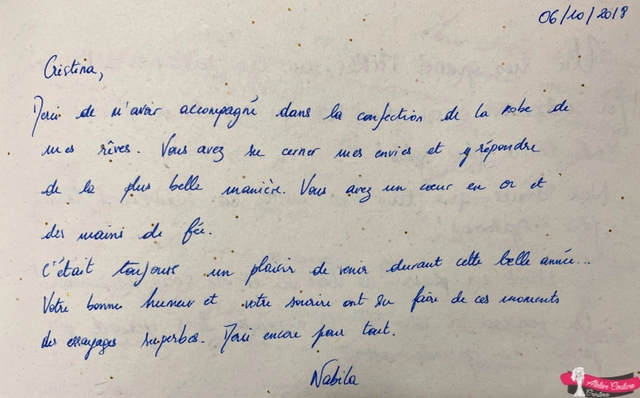 06/10/2018
Cristina,
Merci de m'avoir accompagné dans la confection de la robe de
mes rêves. Vous avez su cerner mes envies et y répondre
de la plus belle manière. Vous avez un cœur en or et
des mains de fée.
C'était toujours un plaisir de venir durant cette belle année...
Votre bonne humeur et votre sourire ont su faire de ces moments
des essayages superbes. Merci encore pour tout.
Nabila
Atelier Couture